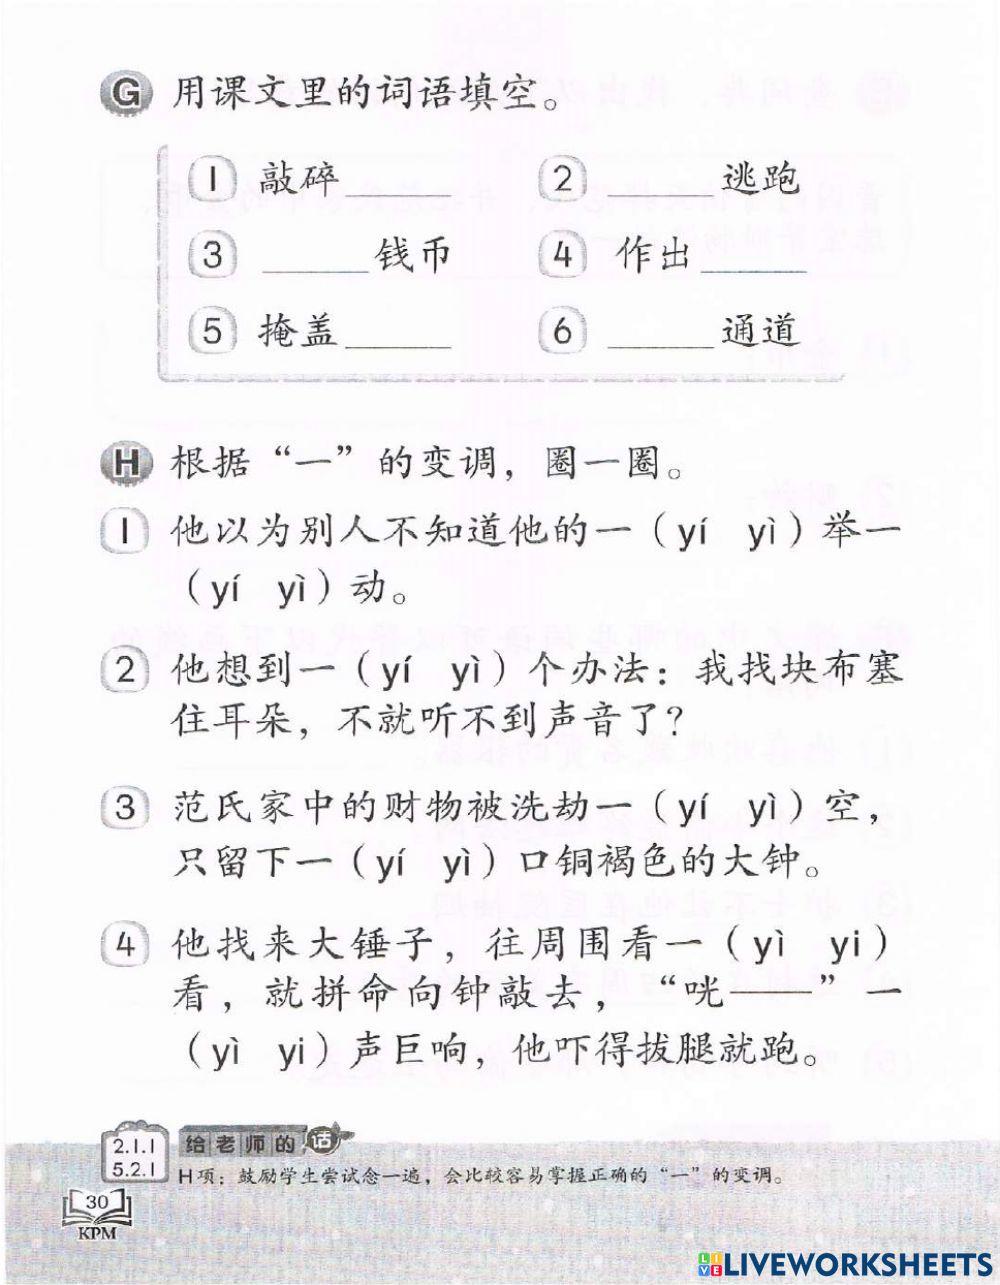 G 用课文里的词语填空。
1 敲碎 2 ______逃跑
3 ______钱币 4 作出______
5 掩盖______ 6 ______通道
H 根据“一”的变调，圈一圈。
1 他以为别人不知道他的一（yí yì）举一
（yí yì）动。
2 他想到一（yí yì）个办法：我找块布塞
住耳朵，不就听不到声音了？
3 范氏家中的财物被洗劫一（yí yì）空，
只留下一（yí yì）口铜褐色的大钟。
4 他找来大锤子，往周围看一（yì yi）
看，就拼命向钟敲去，“咣——”一
（yì yi）声巨响，他吓得拔腿就跑。
2.1.1
5.2.1
给老师的话
H项：鼓励学生尝试念一遍，会比较容易掌握正确的“一”的变调。
30
KPM
LIVE LIVEWORKSHEETS